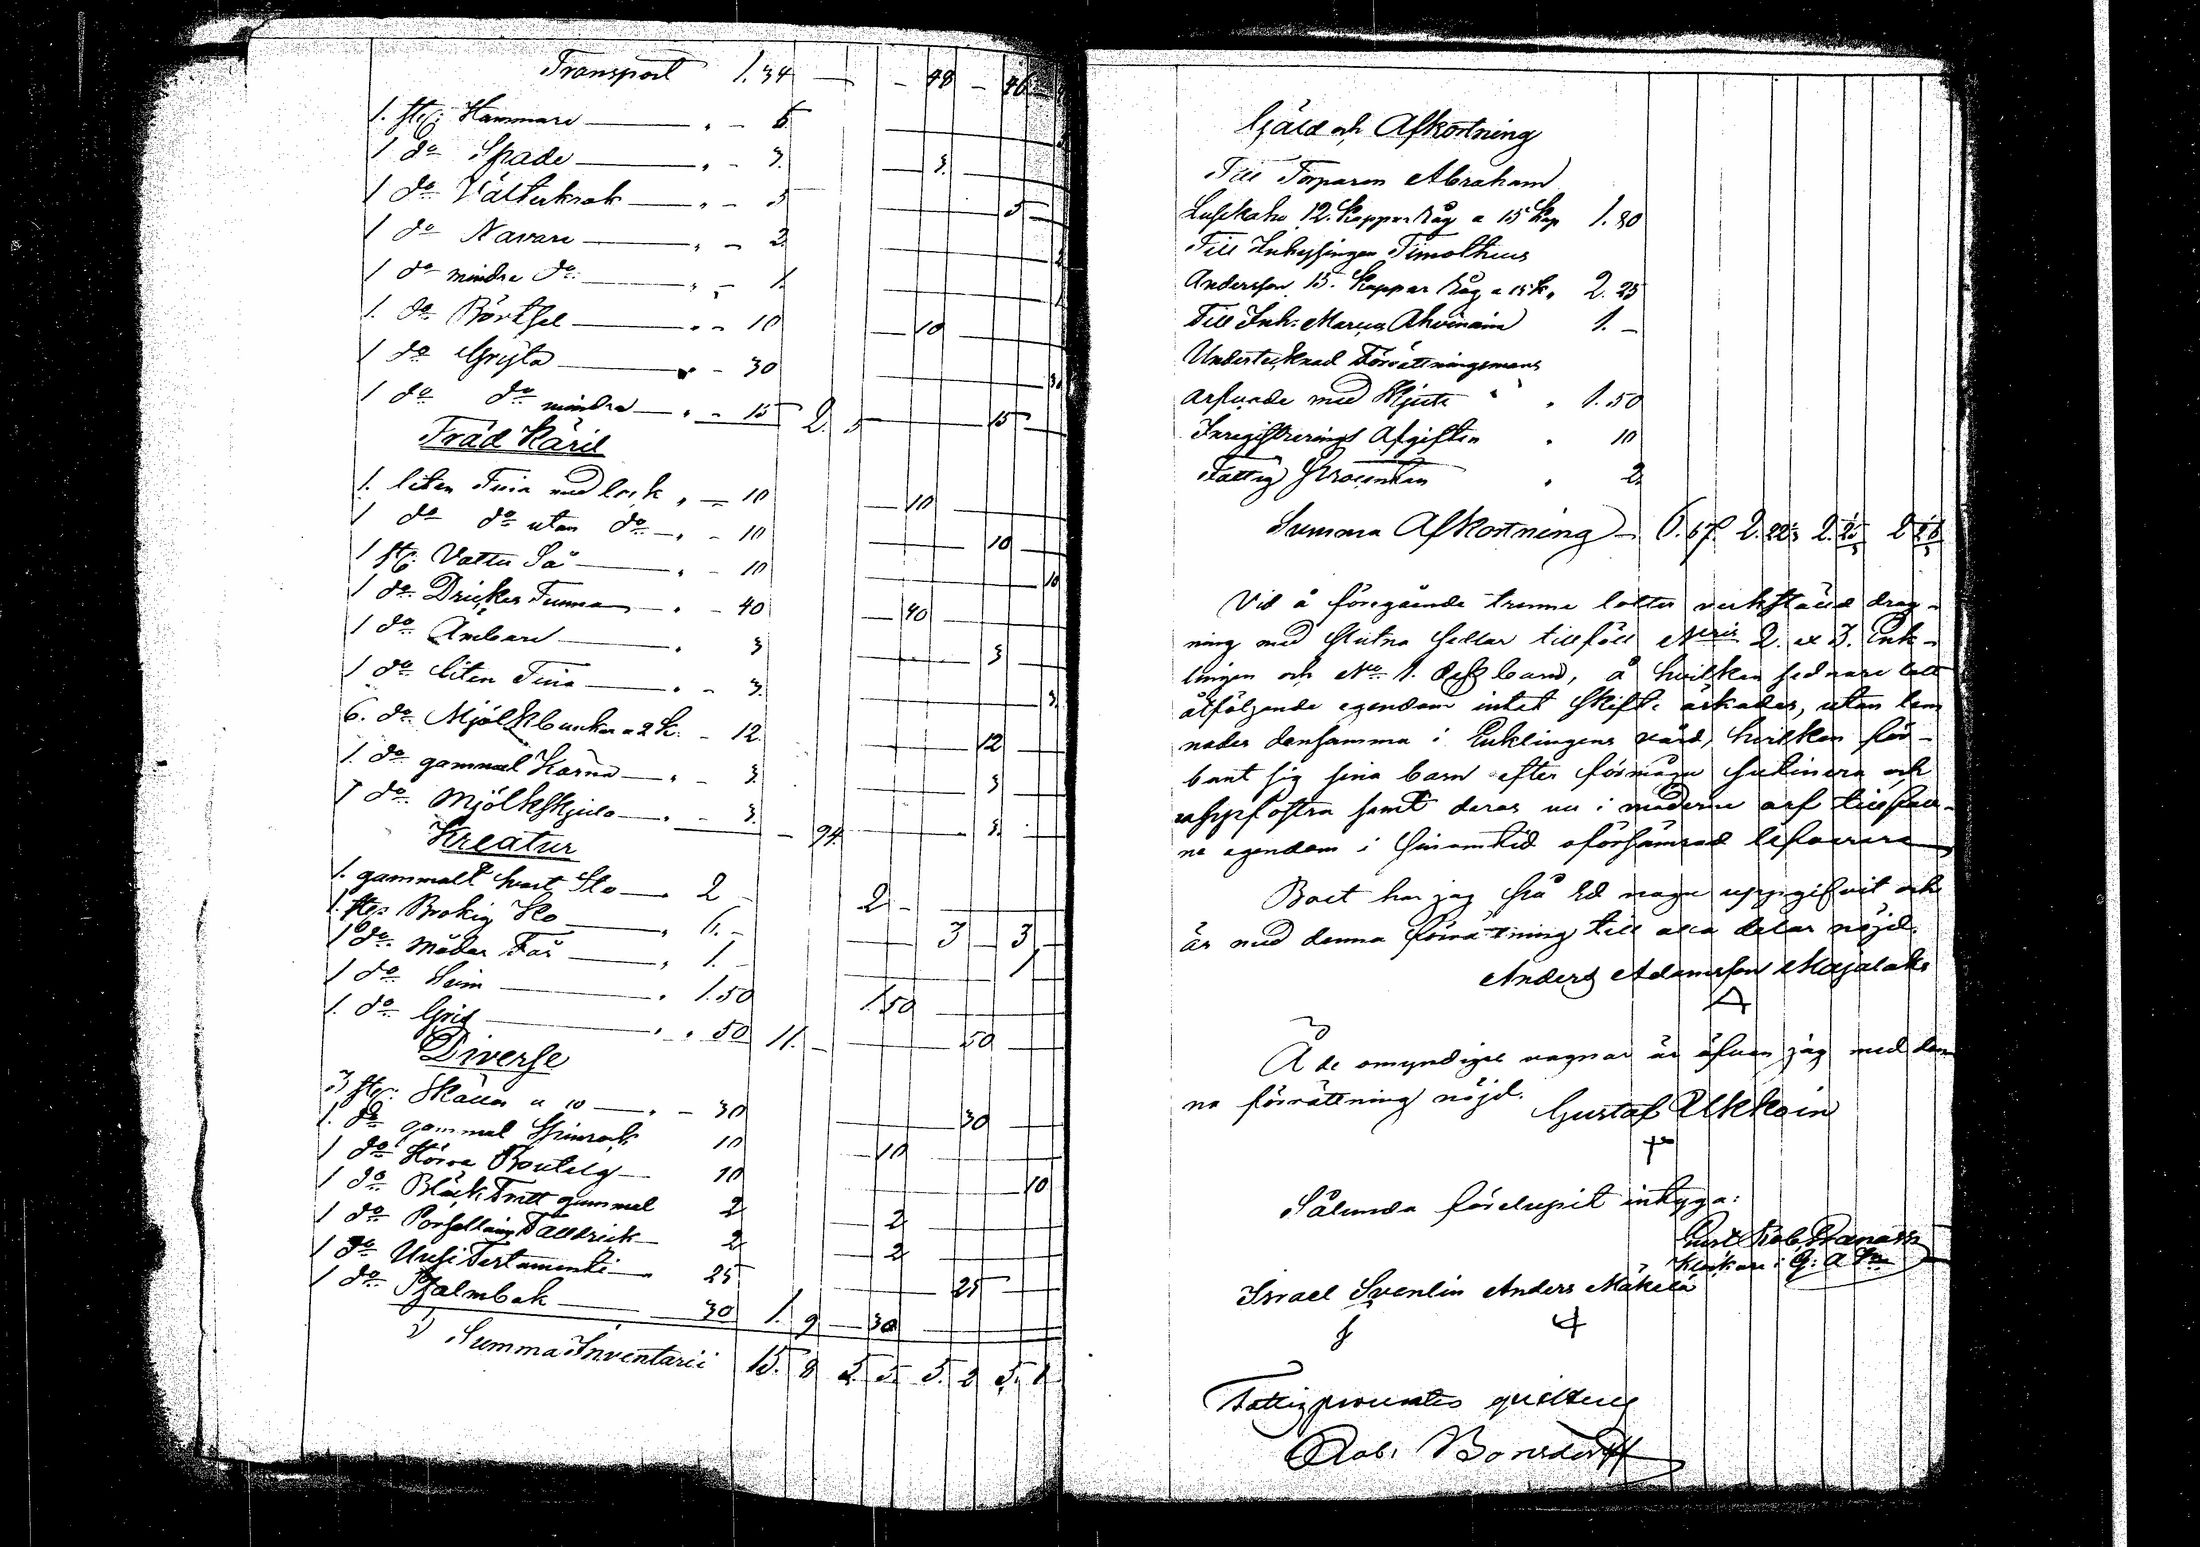 Transport 1. 34 — - 48 - 46
1. st: Hammare " - 5
1 do Spade " - 3. 3.
1 do Välterkrok " - 5 5
1 do Navare " - 2. 2
1 do mindre do " - 1. 1
1. do " - 10 10
1 do Gryta " - 30 30
1 do do mindre " - 15 2. 5 15
Träd Käril
1. liten Tina med lock " - 10 10
1 do do utan do " - 10 10
1 st: Vattu Så " - 10 10
1 do Dricks Tunna " - 40 40
1 do Ämbare " 3 3
1 do liten Tina " - 3. 3.
6. do Mjölkbunkar a 2 k. - 12. 12
1. do gammal Kärna " - 3. 3
1 do Mjölkskjula " - 3. - 94. 3.
Kreatur
1. gammalt svart Sto " 2 - 2 -
1. st: Brokig Ko " 6. - 3 - 3 -
1 do Moder Får " 1. 1
1 do " 1.50 1.50
1. do Gris " " 50 11. - 50
Diverse
3 st: Skålar a 10 " - 30 30
1. do gammal Spinrock 10 10
1 do större Boutelg 10 10
1 do Bläck Tratt gammal 2 2
1 do Porsellains Talldrick 2 2
1 do Uusi Testamenti 25 25
1 do Psalmbok 30 1. 9 30
Summa Inventarii 15. 8 5. 5. 5. 2 5. 1
Gäld och Afkortning
Till Torparen Abraham
12. Kappar Råg a 15 Kop 1. 80
Till Inhysingen Timotheus
Andersson 15. Kappar Råg a 15 k. 2. 25
Till Inh: Maria Ahvenain 1. -
Undertecknad Förrättningsmans
arfvode med Skjuts " " 1. 50
Inregistrerings Afgiften " 10
Fattig Procenten " 2
Summa Afkortning 6. 67 2. 22 2. 2
Vid å föregående trenne lotter verkstäld drag-
ning med slutna sedlar tillföll Nris 2. et 3. Enk-
lingen och No 1. dess barn, å hvilken sednare lott
åtföljande egendom intet skifte äskades, utan lem
nades densamma i Enklingens vård, hvilken för-
bant sig sina barn efter förmågan och
uppfostra samt deras nu i möderne arf tillfall-
ne egendom i sinom tid oförsämrad lefverera
Boet har jag så Ed uppgifvit och
är med denna förrättning till alla delar nöjd.
Anders Adamsson Majalaks
Å de omyndiges vagnar är äfven jag med den
na förrättning nöjd. Gustaf Ukkoin
Sålunda förelupit intyga:
Klockare i
Israel Svenlin Anders Mäkelä
Fattigprocenten quitteras
Rob: Bonsdorff